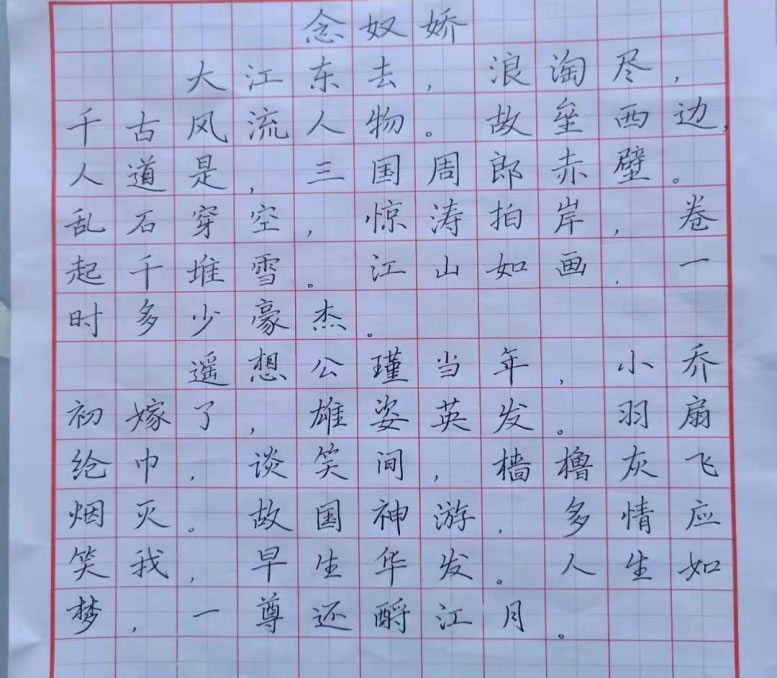 念奴娇
大江东去，浪淘尽，
千古风流人物。故垒西边，
人道是，三国周郎赤壁。
乱石穿空，惊涛拍岸，卷
起千堆雪。江山如画，一
时多少豪杰。
遥想公瑾当年，小乔
初嫁了，雄姿英发。羽扇
纶巾，谈笑间，樯橹灰飞
烟灭。故国神游，多情应
笑我，早生华发。人生如
梦，一尊还酹江月。